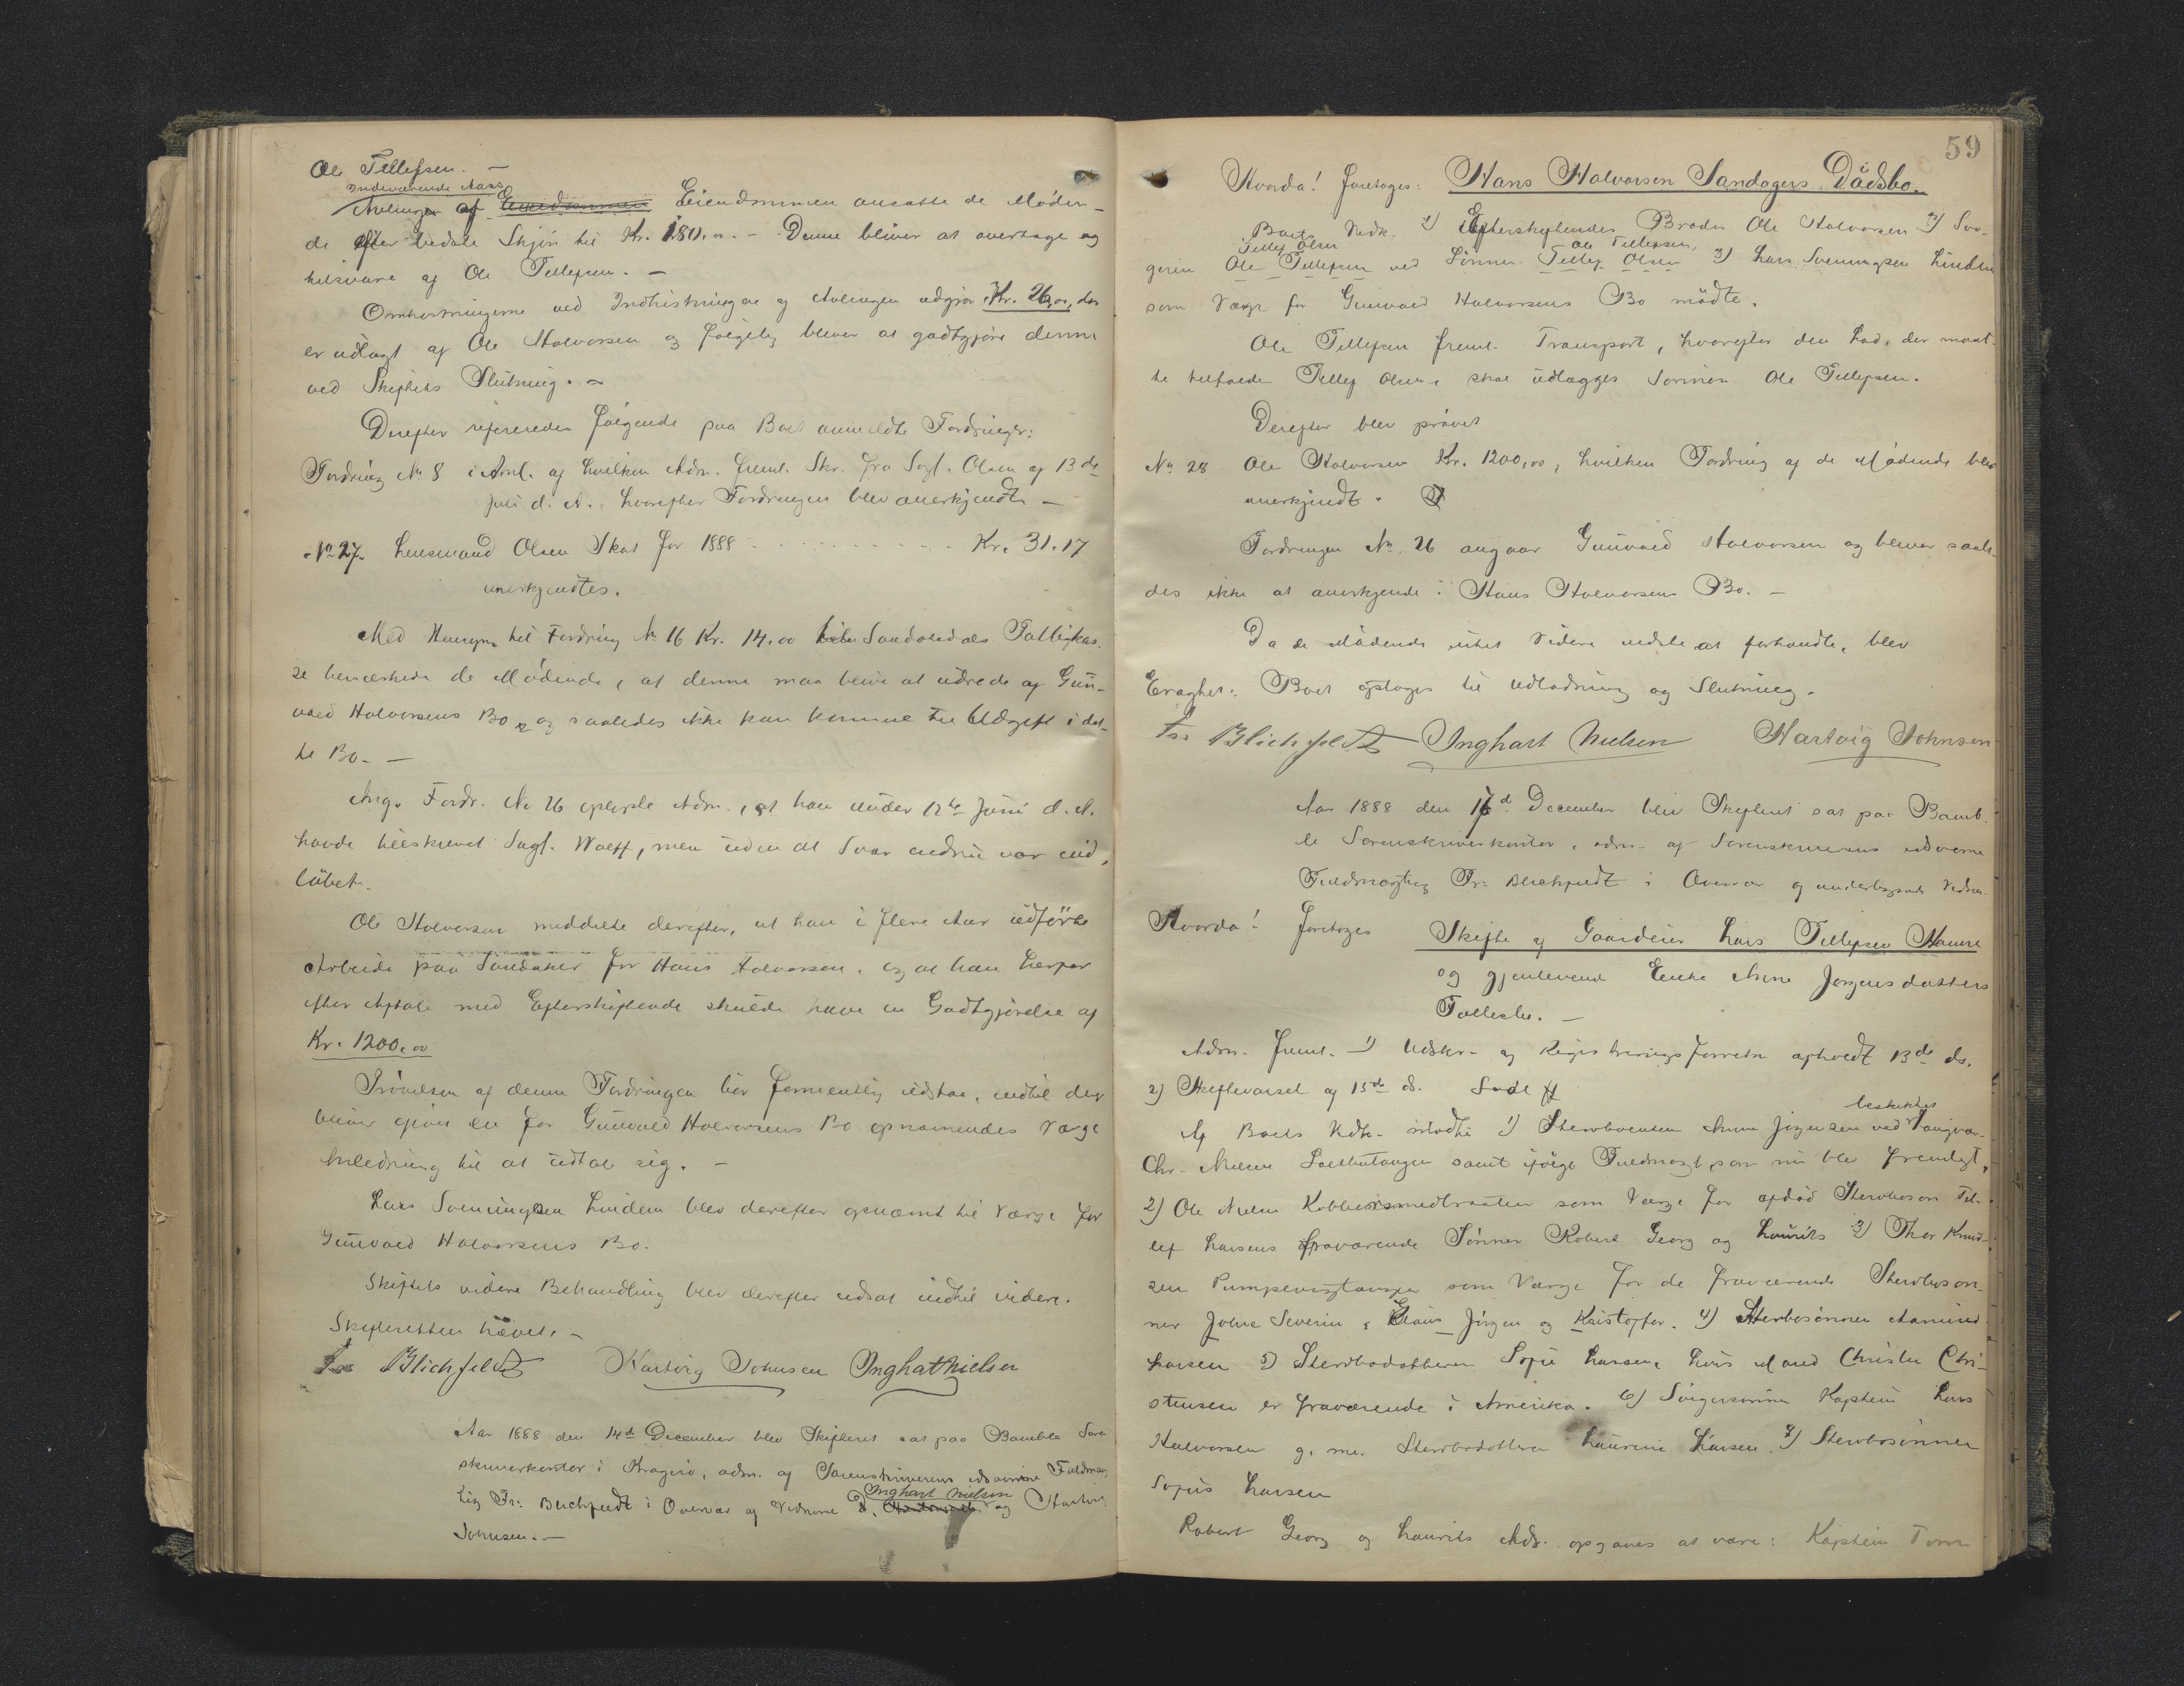 Ole Tellefsen. —
Indeværende Aars
Avlingen af Eiendommen Eiendommen ansatte de Möden-
de efter bedste Skjön til Kr. 180.00. — Denne bliver at overtage og
tilsvare af Ole Tellefsen. —
Omkostningerne ved Indhöstningen af Avlingen udgjör Kr. 26,00, der
er udlagt af Ole Halvorsen og fölgelig bliver at godtgjöre denne
ved Skiftets Slutning. —
Derefter refereredes fölgende paa Boet anmeldte Fordringer:
Fordring No 8 i Anl. af hvilken Adm. freml. Skr. fra Sagf. Olsen af 13de
Juli d. A., hvorefter Fordringen blev anerkjendt —
No 27. Lensmand Olsen Skat for 1888 . . . . . . . . . . Kr. 31.17
anerkjendtes.
Med Hensyn til Fordring No 16 Kr. 14.00 Sandökedals Fattigkas-
se bemærkede de Mödende, at denne maa blive at udrede af Gun-
vald Halvorsens Bo, og saaledes ikke kan komme til Udgift i det-
te Bo. —
Ang. Fordr. No 26 oplyste Adm., at han under 12te Juni d. A.
havde tilskrevet Sagf. Wolff, men uden at Svar endnu var ind-
löbet.
Ole Halvorsen meddelte derefter, at han i flere Aar udförte
Arbeide paa Sandaker for Hans Halvorsen, og at han herfor
efter Aftale med Efterskiftende skulde have en Godtgjörelse af
Kr. 1200,00
Prövelsen af denne Fordringen bör formentlig udstaa, indtil der
bliver given en for Gunvald Halvorsens Bo opnævnendes Værge
Anledning til at udtale sig. —
Lars Svenningsen Lindem blev derefter opnævnt til Værge for
Gunvald Halvorsens Bo.
Skiftets videre Behandling blev derefter udsat indtil videre.
Skifteretten hævet. —
Fr. Blichfeldt Hartvig Johnsen Inghart Nielsen
Aar 1888 den 14de December blev Skifteret sat paa Bamble Soren-
skriverkontor i Kragerö, adm. af Sorenskriverens edsvorne Fuldmæg-
Inghart Nielsen
tig Fr. Blichfeldt i Overvær af Vidnerne og Hartvig
Johnsen. —
59
Hvorda! foretoges: Hans Halvorsen Sandagers Dödsbo.
Boets Vedk. 1) Efterskiftendes Broder Ole Halvorsen 2) Svo-
Tellef Olsen Ole Tellefsen,
geren Ole Tellefsen ved Sönnen Tellef Olsen 3) Lars Svenningsen Lindem
som Værge for Gunvald Halvorsens Bo mödte.
Ole Tellefsen freml. Transport, hvorefter den Lod, der maat-
te tilfalde Tellef Olsen, skal udlægges Sönnen Ole Tellefsen.
Derefter blev prövet
No 28 Ole Halvorsen Kr. 1200,00, hvilken Fordring af de Mödende blev
anerkjendt.
Fordringen No 26 angaar Gunvald Halvorsen og bliver saale-
des ikke at anerkjende i Hans Halvorsens Bo. —
Da de Mödende intet videre vidste at forhandle, blev
Eragtet: Boet optages til Udlodning og Slutning.
Fr. Blichfeldt Inghart Nielsen Hartvig Johnsen
Aar 1888 den 17de December blev Skifteret sat paa Bamb-
le Sorenskriverkontor, adm. af Sorenskriverens edsvorne
Fuldmægtig Fr. Blichfeldt i Overvær af underteg­nede Vidner.
Hvorda! foretoges Skifte af Gaardeier Lars Tellefsen
og gjenlevende Enke Anne Jörgensdatters
Fællesbo. —
Adm. freml. 1) Udskr. af Registreringsforretn. afholdt 13de ds.
2) Skiftevarsel af 15de ds.
beskikket
Af Boets Vedk. mödte 1) Sterboenken Anne Jörgensen ved Laugvær-
Chr. Nielsen samt ifölge Fuldmagt, som nu blev fremlagt,
2) Ole Nielsen som Værge for afdöd Sterbosön Tel-
lef Larsens fraværende Sönner Robert Georg og Laurits 3) Thor Knud-
sen som Værge for de fraværende Sterbosön-
ner Johne Severin, Klaus Jörgen og Kristoffer. 4) Sterbosönnen Aamund
Larsen 5) Sterbodatteren Sofie Larsen, hvis Mand Christen Chri-
stensen er fraværende i Amerika. 6) Svigersönnen Kaptein Lars
Halvorsen g. m. Sterbodatteren Laurine Larsen. 7) Sterbosönnen
Sofus Larsen
Robert Georg og Laurits Adr. opgaves at være: Kaptein